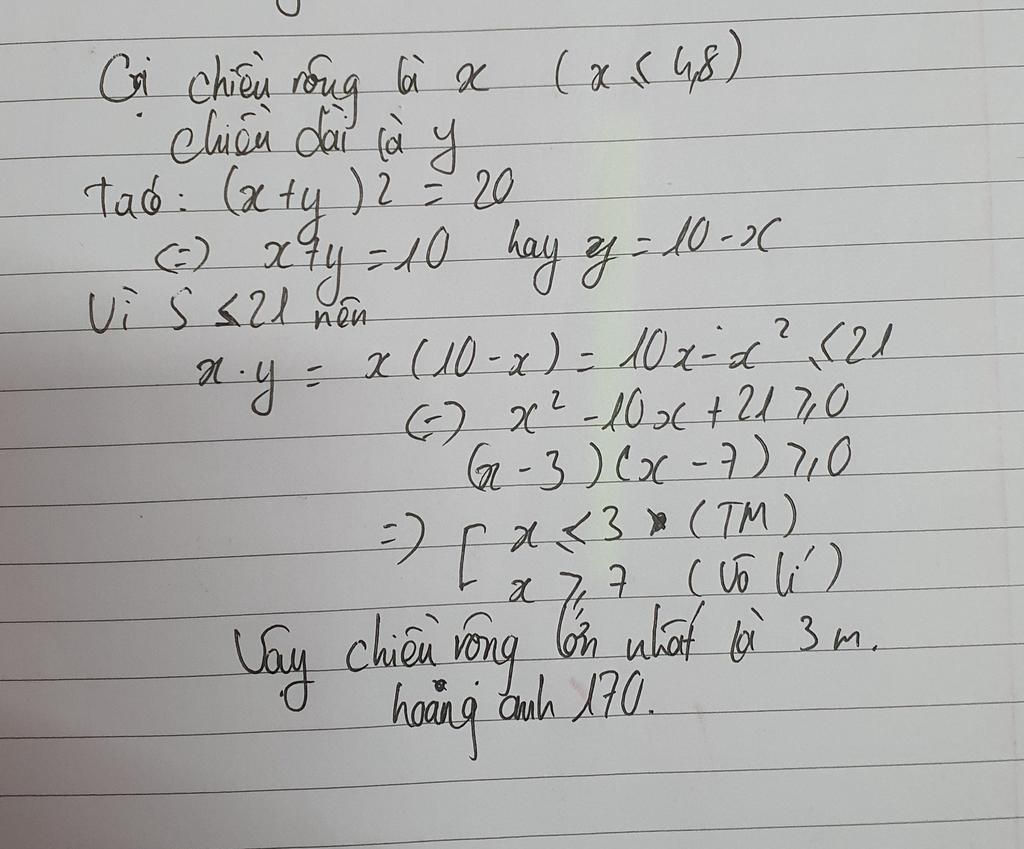 Gọi chiều rộng là x (x ≤ 4,8)
chiều dài là y
ta có: (x+y)2 = 20
(=) x+y = 10 hay y = 10-x
Vì S ≤ 21 nên
x.y = x(10-x) = 10x-x² ≤ 21
(=) x² -10x + 21 ≥ 0
(x-3)(x-7) ≥ 0
=) [ x ≤ 3 (TM)
x ≥ 7 (Vô lí)
Vậy chiều rộng lớn nhất là 3 m.
hoàng anh 170.